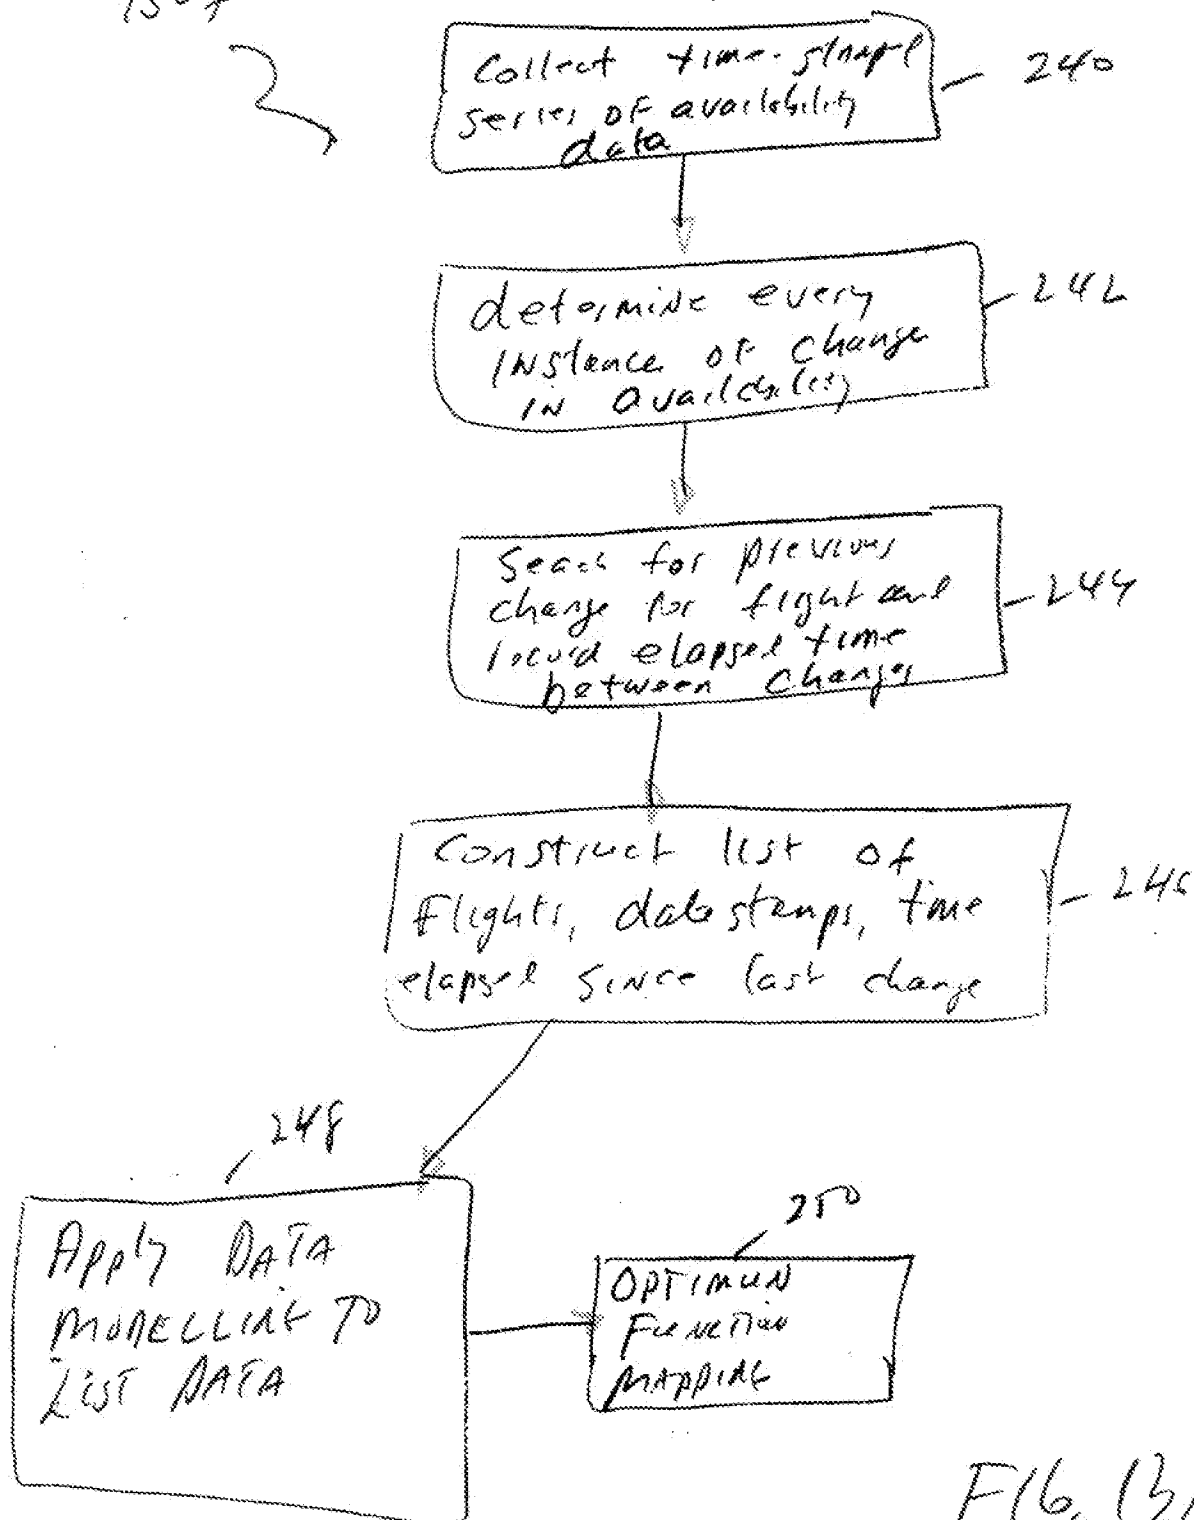 Collect time-stamped
240
series of availability
data
determine every
242
instance of change
in availability
Seach for previous
change for flight and
244
record elapsed time
between changes
Construct list of
Flights, date stamps, time
246
elapsed since last change
248
Apply DATA
MODELLING TO
LIST DATA
250
OPTIMUN
FUNCTION
MAPPING
FIG. 13